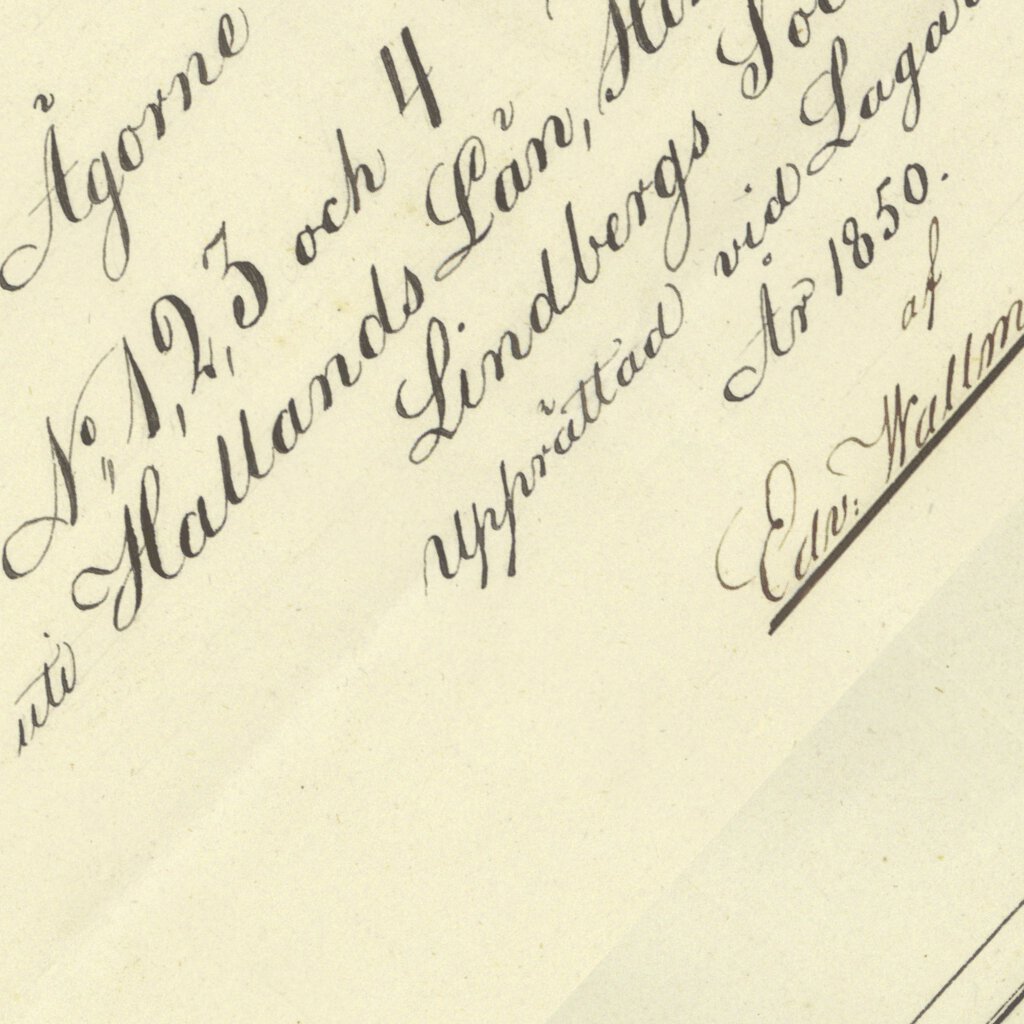 Ägorne
No 1, 2, 3 och 4
uti Hallands Län,
Lindbergs
upprättad vid
År 1850.
af
Edv: